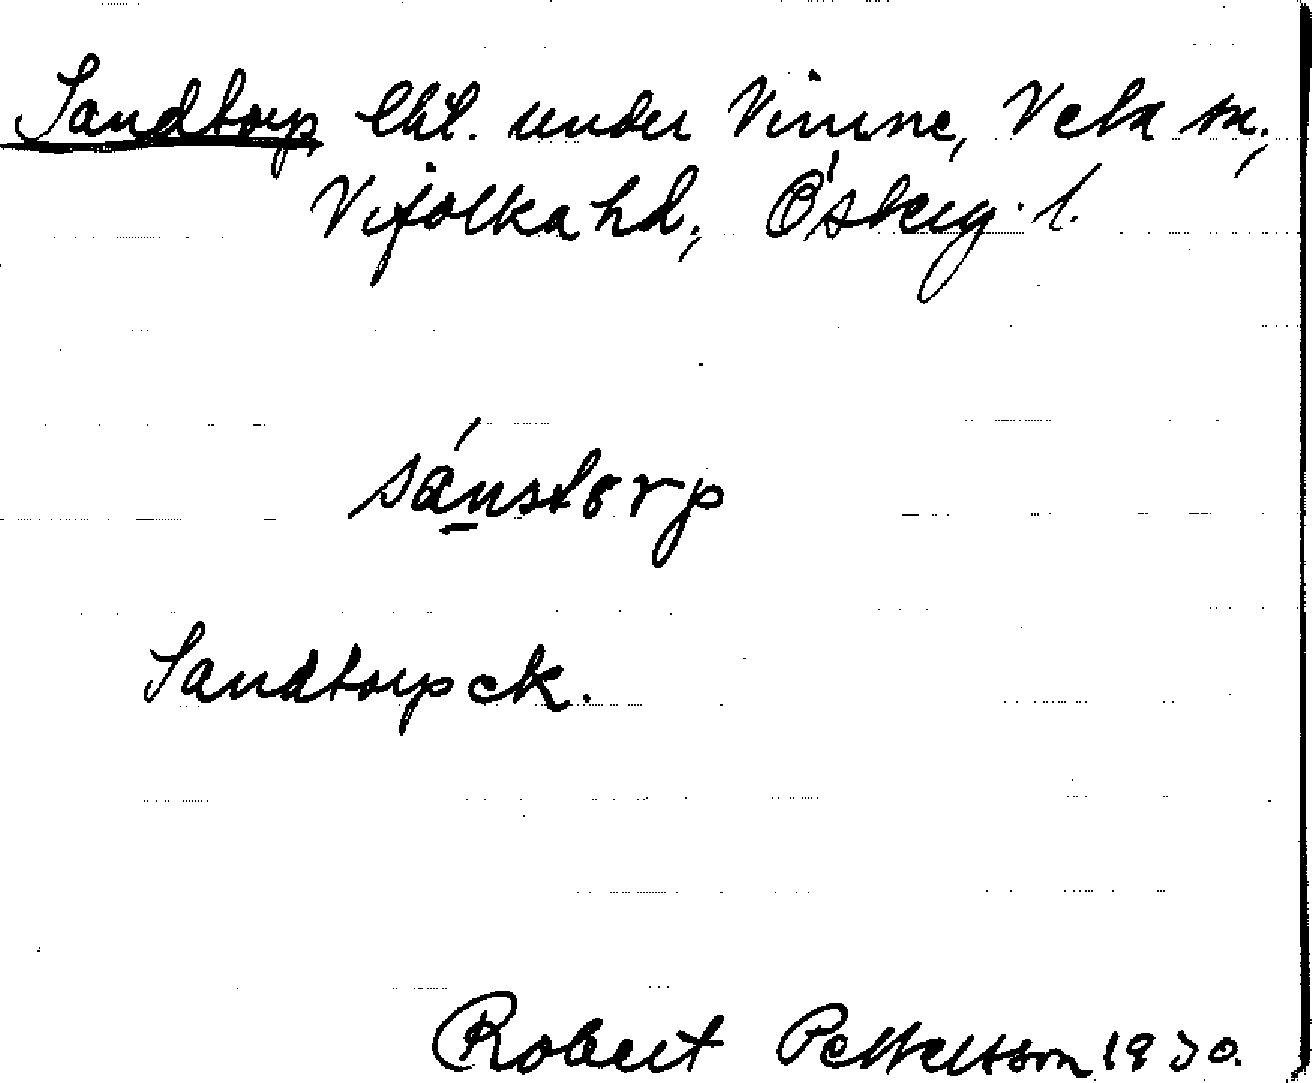 Sandtorp, lht. under Vinne, Veta sn,
Vifolka hd, Österg. l.
sánstorp
Sandtorp ek.
Robert Pettersson 1930.